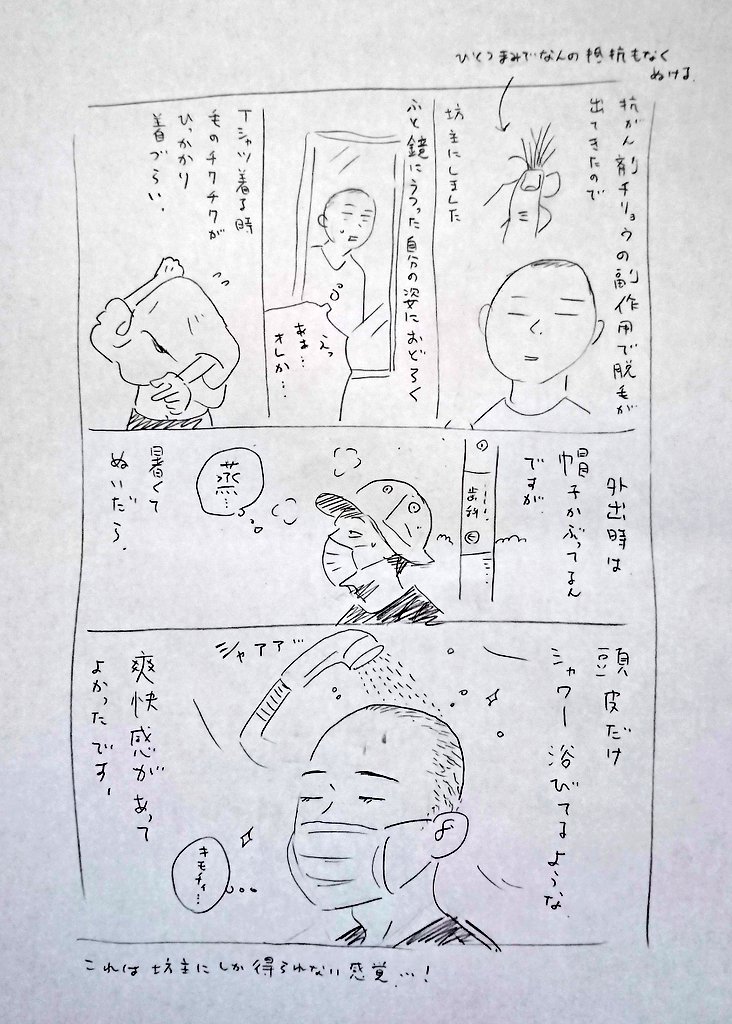 ひとつまみでなんの抵抗もなく
ぬける
抗がん剤チリョウの副作用で脱毛が
出てきたので
坊主にしました
ふと鏡にうつった自分の姿におどろく
えっ
あぁ…
オレか…
Tシャツ着る時
毛のチクチクが
ひっかかり
着づらい。
外出時は
帽子かぶってるん
ですが
歯科
蒸…
暑くて
ぬいだら、
頭皮だけ
シャワー浴びてるような
シャアアア…
爽快感があって
よかったです!
キモチィ…
これは坊主にしか得られない感覚…!